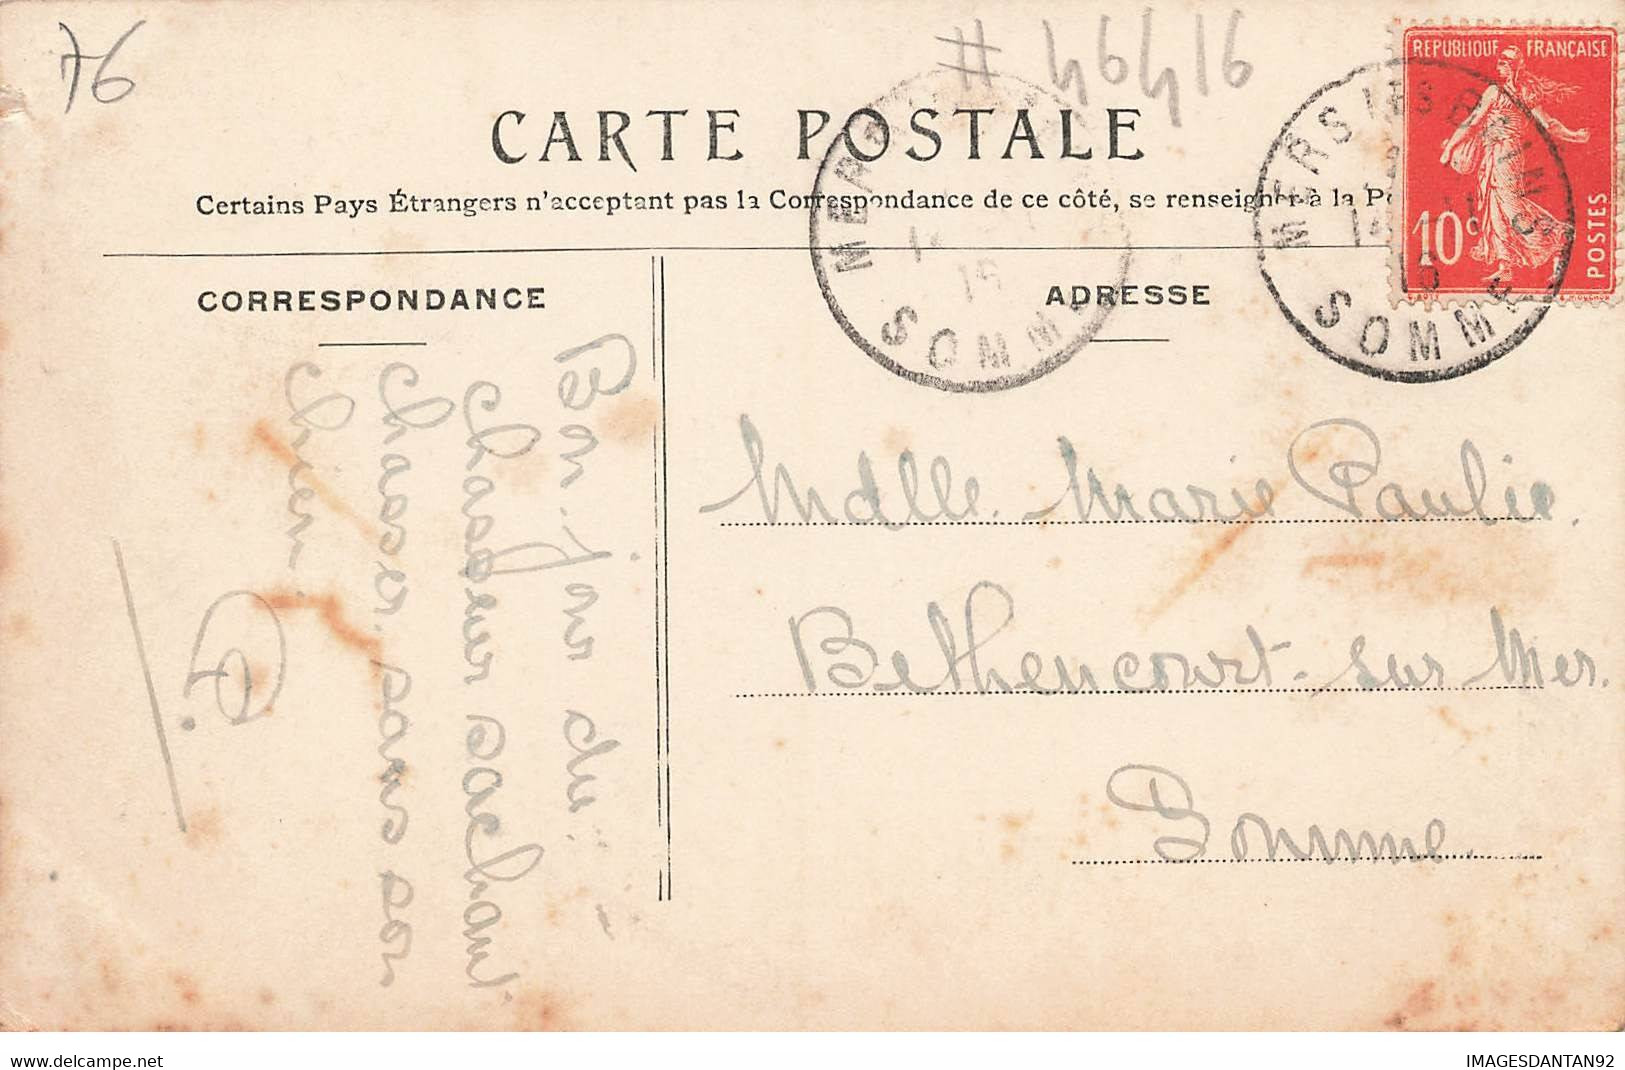 76
# 46416
CARTE POSTALE
Certains Pays Étrangers n'acceptant pas la Correspondance de ce côté, se renseigner à la P
REPUBLIQUE FRANÇAISE
10c
POSTES
MERS
SOMME
MERS LES BAINS
SOMME
CORRESPONDANCE
ADRESSE
Bon-jour du
chasseur sachant
chasser sans son
chien
P.
Mdlle. Marie Paulie.
Bethencourt-sur Mer.
Somme.
www.delcampe.net
IMAGESDANTAN92